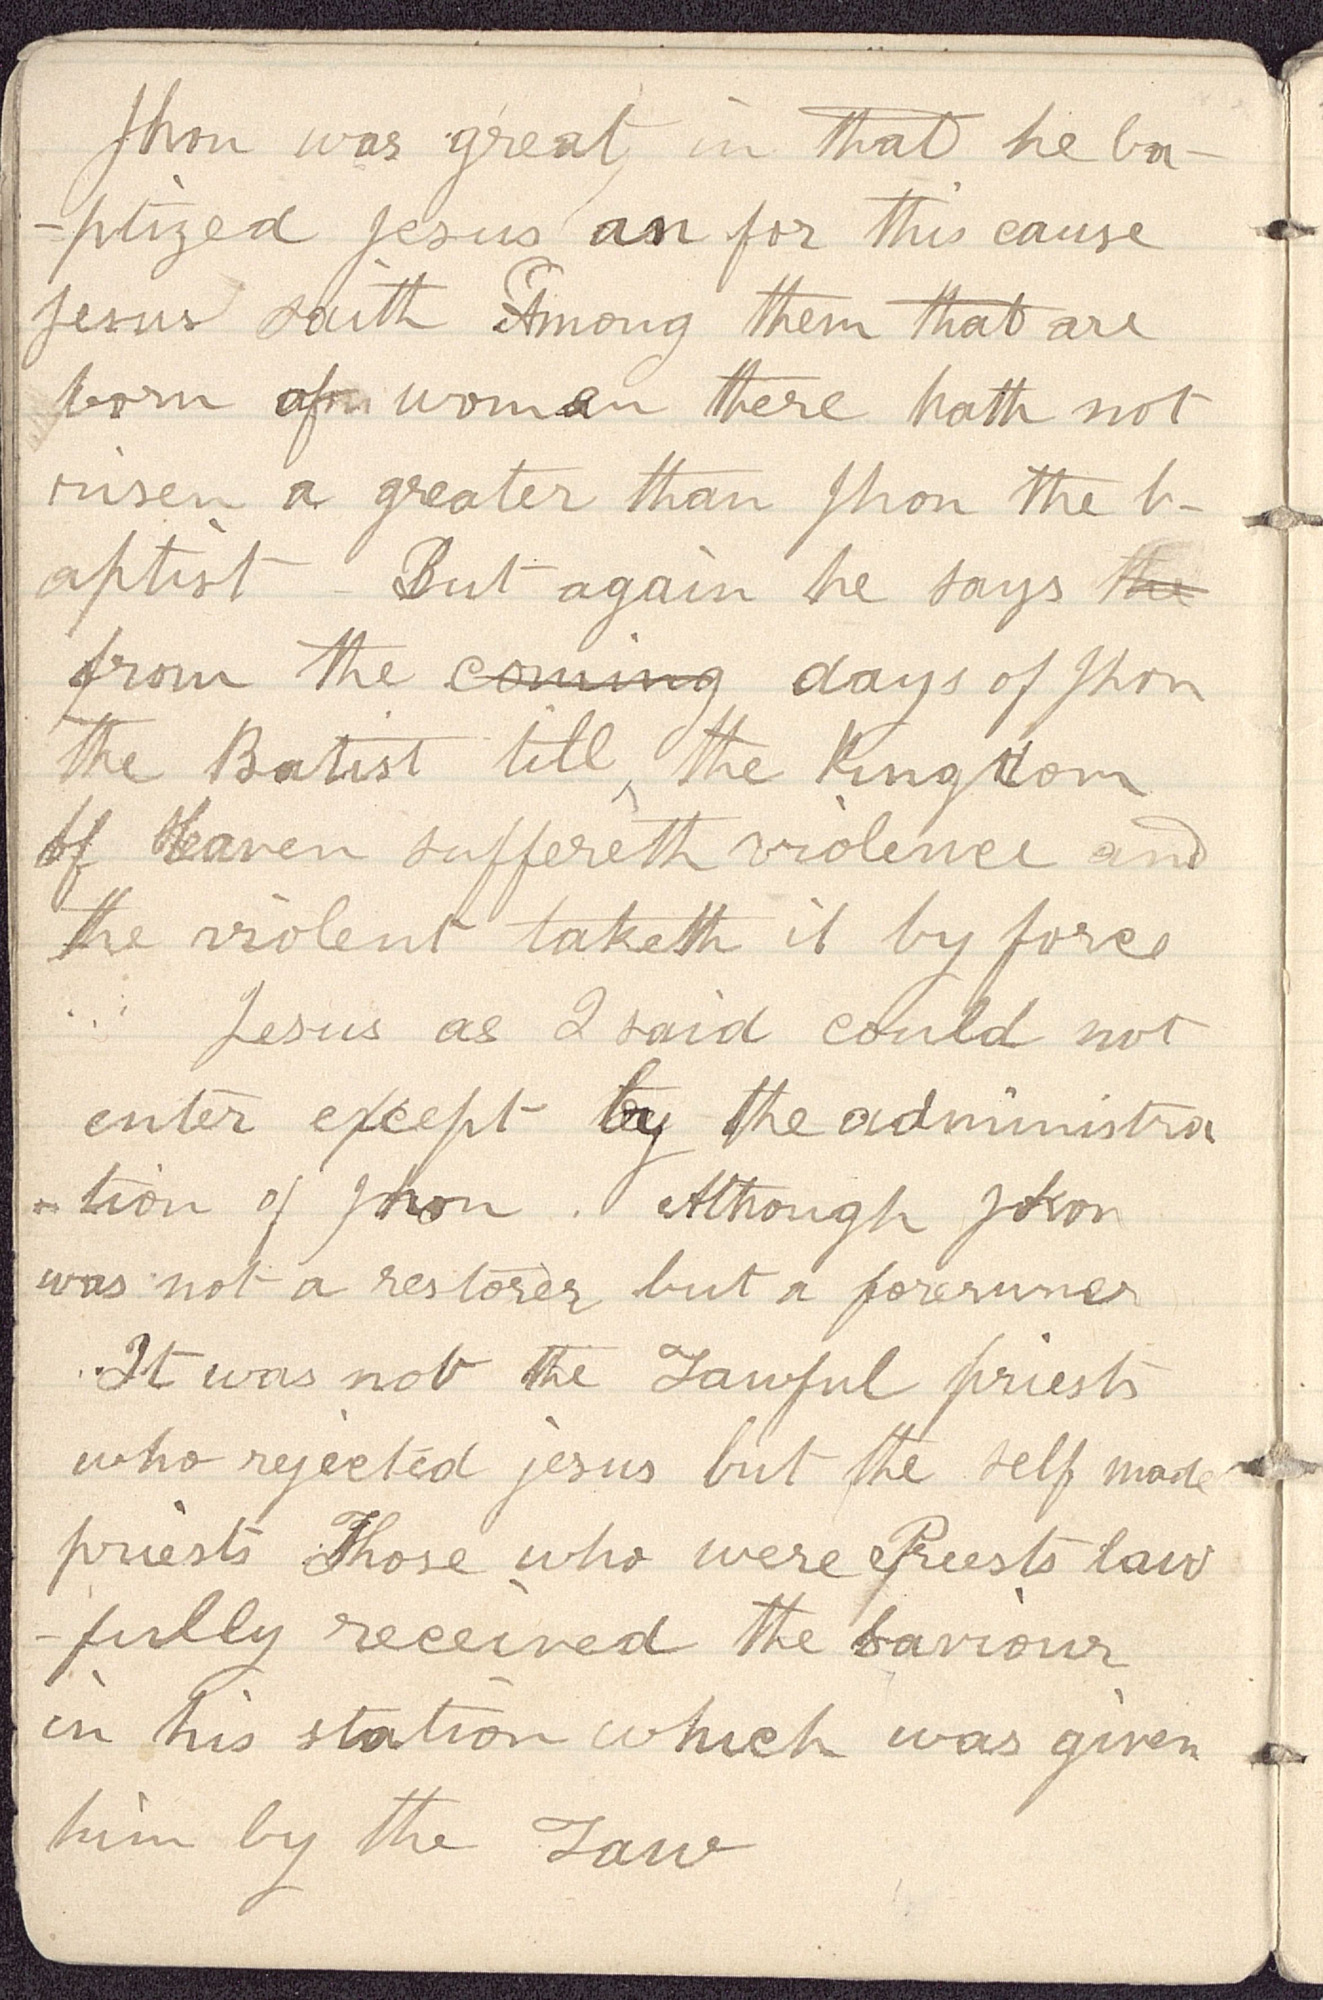 Jhon was great, in that he ba-
-ptized Jesus an for this cause
Jesus saith Among them that are
born of woman there hath not
risen a greater than Jhon the b-
aptist - But again he says the
from the coming days of Jhon
the Batist till, the Kingdom
of Heaven suffereth violence and
the violent taketh it by force
Jesus as I said could not
enter except by the administra
-tion of Jhon. Although Jhon
was not a restorer but a foreruner
It was not the Lawful priests
who rejected jesus but the self made
priests Those who were Preests law
-fully received the saviour
in his station which was given
him by the Law